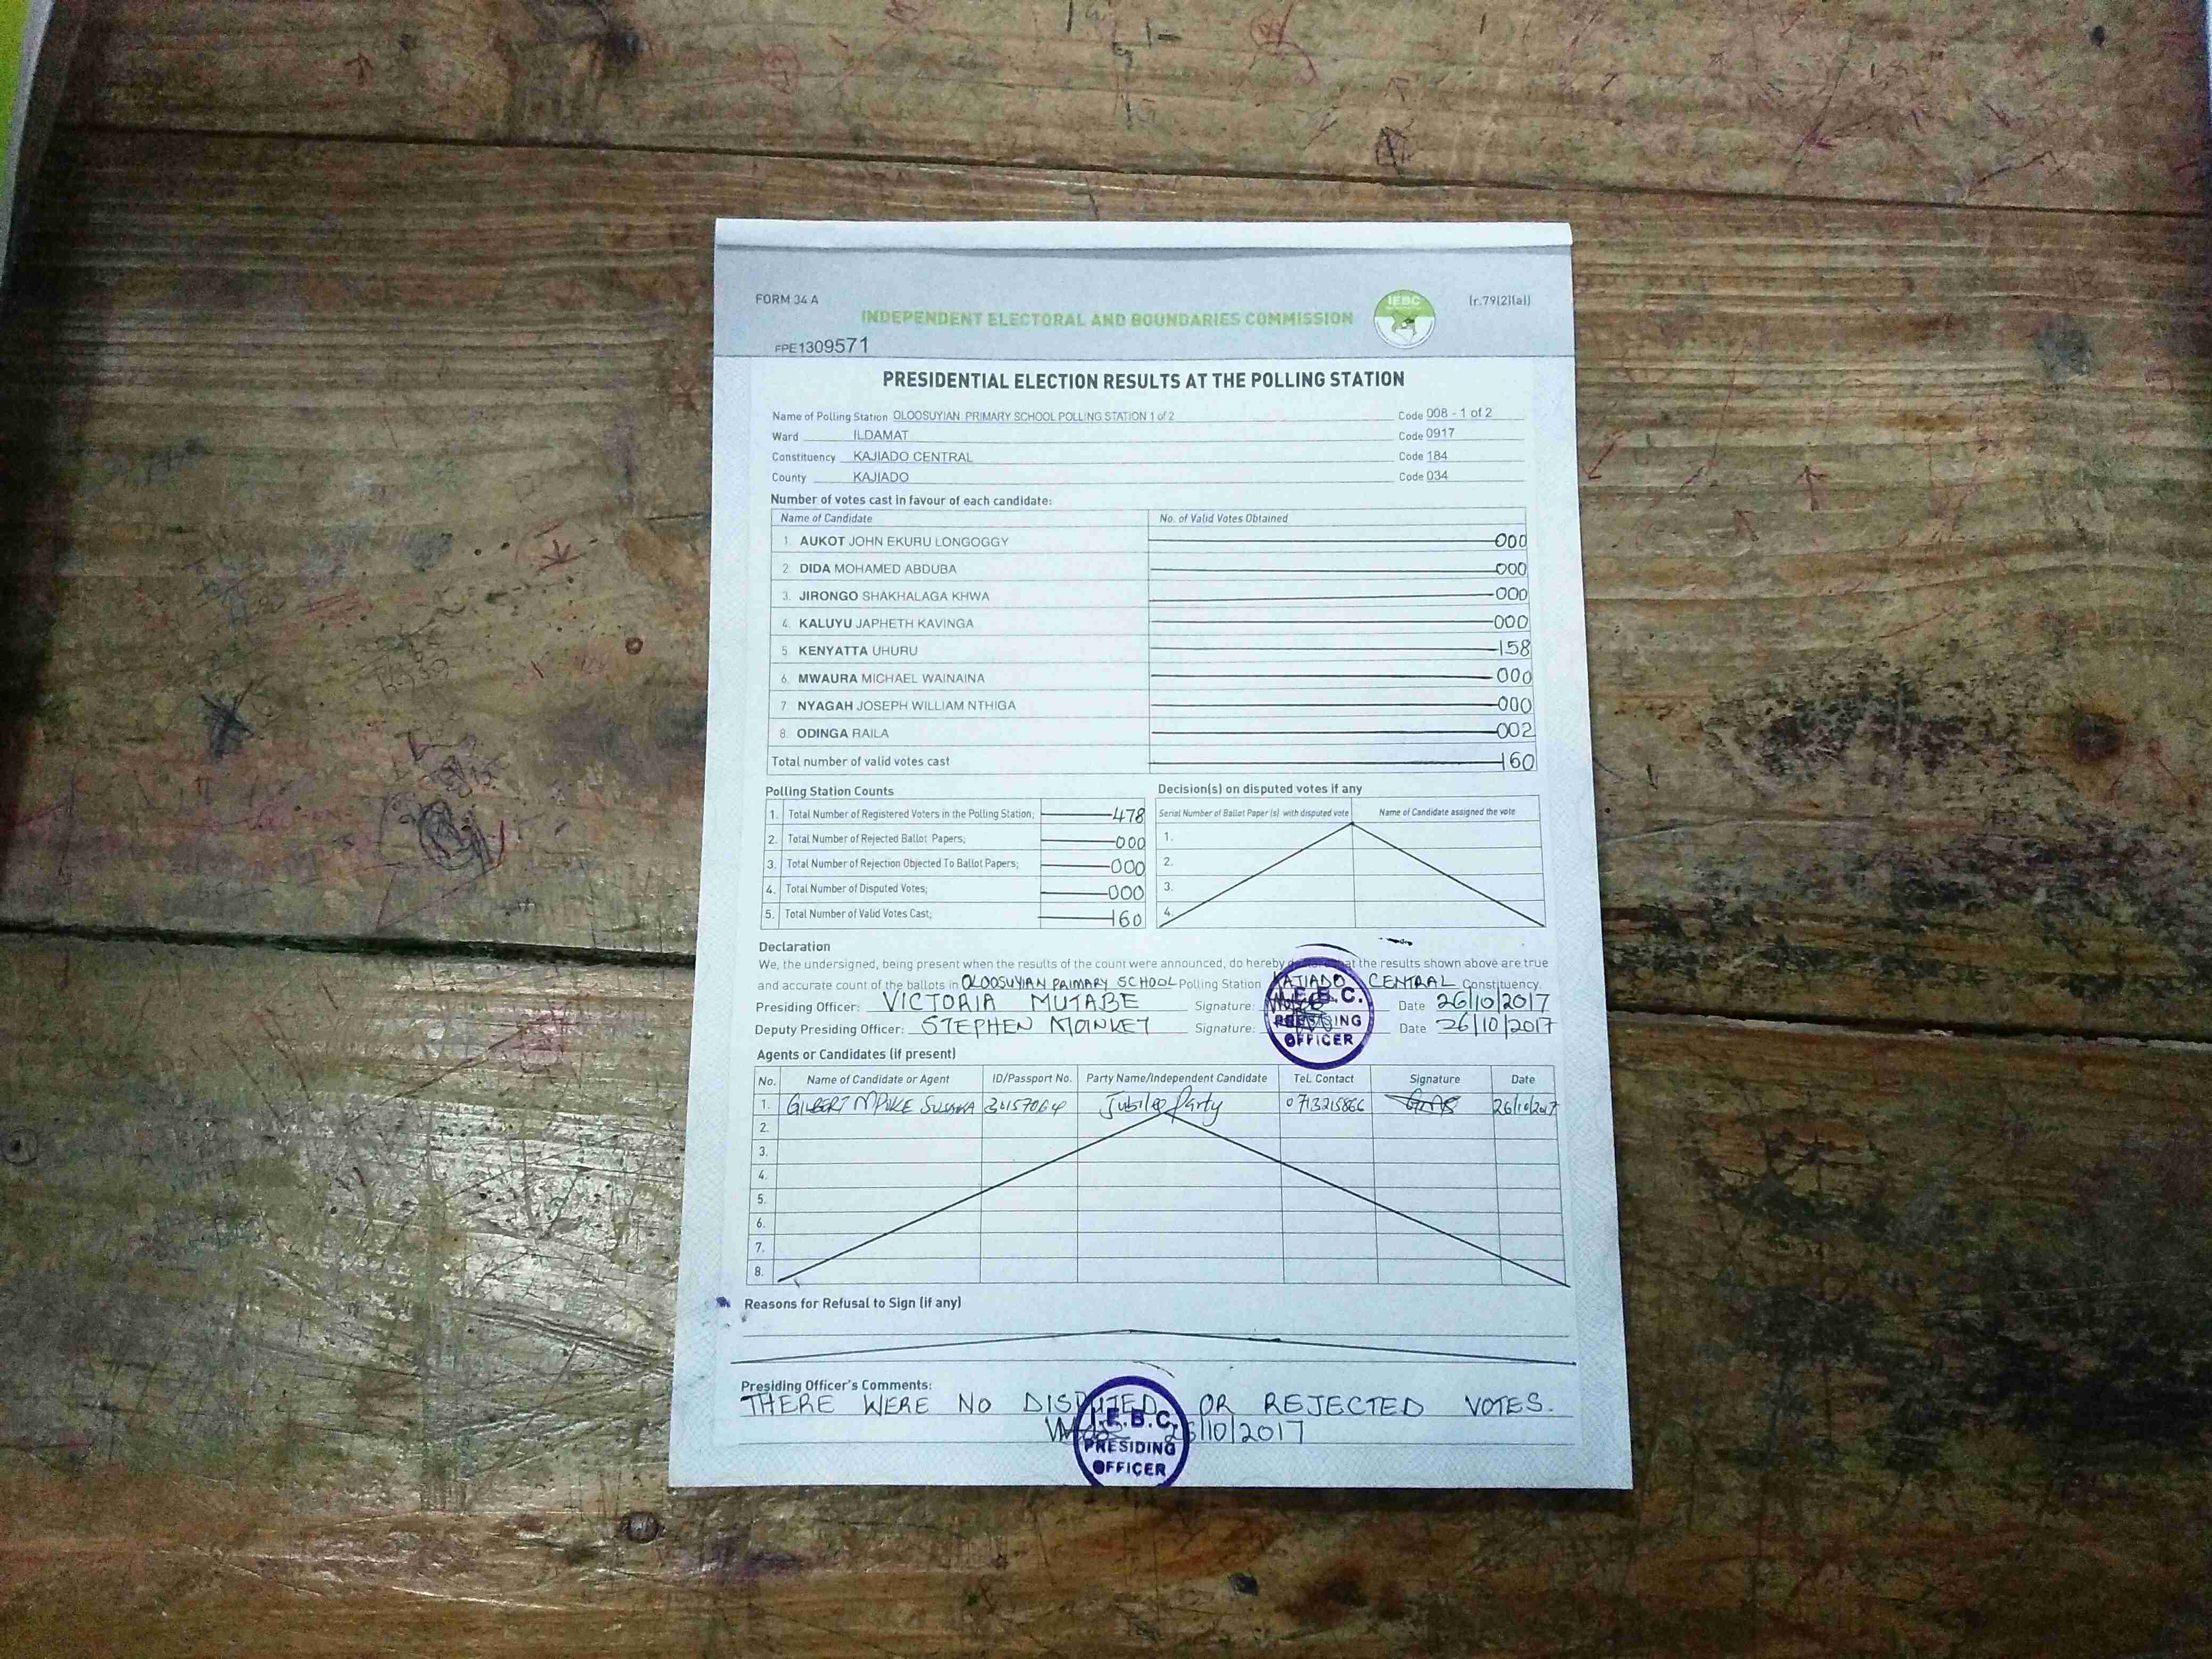 FORM 34 A
(r.79(2)(a))
IEBC
INDEPENDENT ELECTORAL AND BOUNDARIES COMMISSION
FPE1309571
PRESIDENTIAL ELECTION RESULTS AT THE POLLING STATION
Name of Polling Station OLOOSUYIAN PRIMARY SCHOOL POLLING STATION 1 of 2 Code 008 - 1 of 2
Ward ILDAMAT Code 0917
Constituency KAJIADO CENTRAL Code 184
County KAJIADO Code 034
Number of votes cast in favour of each candidate:
Name of Candidate No. of Valid Votes Obtained
1. AUKOT JOHN EKURU LONGOGGY 000
2. DIDA MOHAMED ABDUBA 000
3. JIRONGO SHAKHALAGA KHWA 000
4. KALUYU JAPHETH KAVINGA 000
5. KENYATTA UHURU 158
6. MWAURA MICHAEL WAINAINA 000
7. NYAGAH JOSEPH WILLIAM NTHIGA 000
8. ODINGA RAILA 002
Total number of valid votes cast 160
Polling Station Counts
1. Total Number of Registered Voters in the Polling Station; 478
2. Total Number of Rejected Ballot Papers; 000
3. Total Number of Rejection Objected To Ballot Papers; 000
4. Total Number of Disputed Votes; 000
5. Total Number of Valid Votes Cast; 160
Decision(s) on disputed votes if any
Serial Number of Ballot Paper (s) with disputed vote Name of Candidate assigned the vote
1.
2.
3.
4.
Declaration
We, the undersigned, being present when the results of the count were announced, do hereby declare that the results shown above are true
and accurate count of the ballots in OLOOSUYIAN PRIMARY SCHOOL Polling Station KAJIADO CENTRAL Constituency.
Presiding Officer: VICTORIA MUTABE Signature: Date 26/10/2017
Deputy Presiding Officer: STEPHEN MOINKET Signature: Date 26/10/2017
I.E.B.C.
PRESIDING
OFFICER
Agents or Candidates (if present)
No. Name of Candidate or Agent ID/Passport No. Party Name/Independent Candidate Tel. Contact Signature Date
1. GILBERT 30157064 Jubilee Party 0713215866 26/10/2017
2.
3.
4.
5.
6.
7.
8.
Reasons for Refusal to Sign (if any)
Presiding Officer's Comments:
THERE WERE NO DISPUTED OR REJECTED VOTES.
26/10/2017
I.E.B.C.
PRESIDING
OFFICER